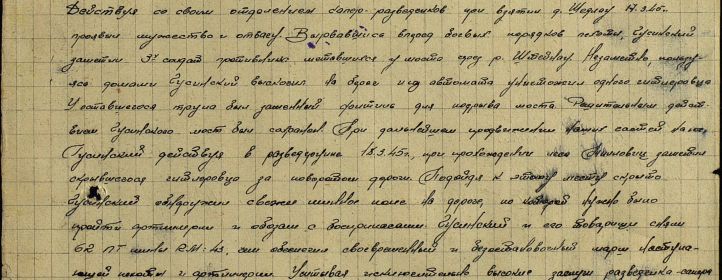 Действуя со своим отделением сапер-разведчиков при взятии д. 17.3.45г.
проявил мужество и отвагу. Вырвавшись вперед боевых порядков пехоты, Гусинский
заметил 3х солдат противника метавшихся у моста через р. Штейнау. Незаметно,
ясь домами Гусинский выскочил на берег и из автомата уничтожил одного гитлеровца
У оставшегося трупа был зажженный фитиль для подрыва моста. Решительным дейст-
вием Гусинского мост был сохранен. При дальнейшем продвижении наших частей на
Гусинский действуя в разведгруппе 18.3.45г., при прохождении леса заметил
скрывшегося гитлеровца за поворотом дороги. Подойдя к этому месту скрыто
Гусинский обнаружил свежее минное поле на дороге, по которой нужно было
пройти артиллерии и обозам с боеприпасами. Гусинский и его товарищи сняли
62 ПТ мины R.M:43, они обеспечили своевременный и безостановочный марш наступа-
ющей пехоты и артиллерии. Учитывая исключительно высокие заслуги разведчика-сапера